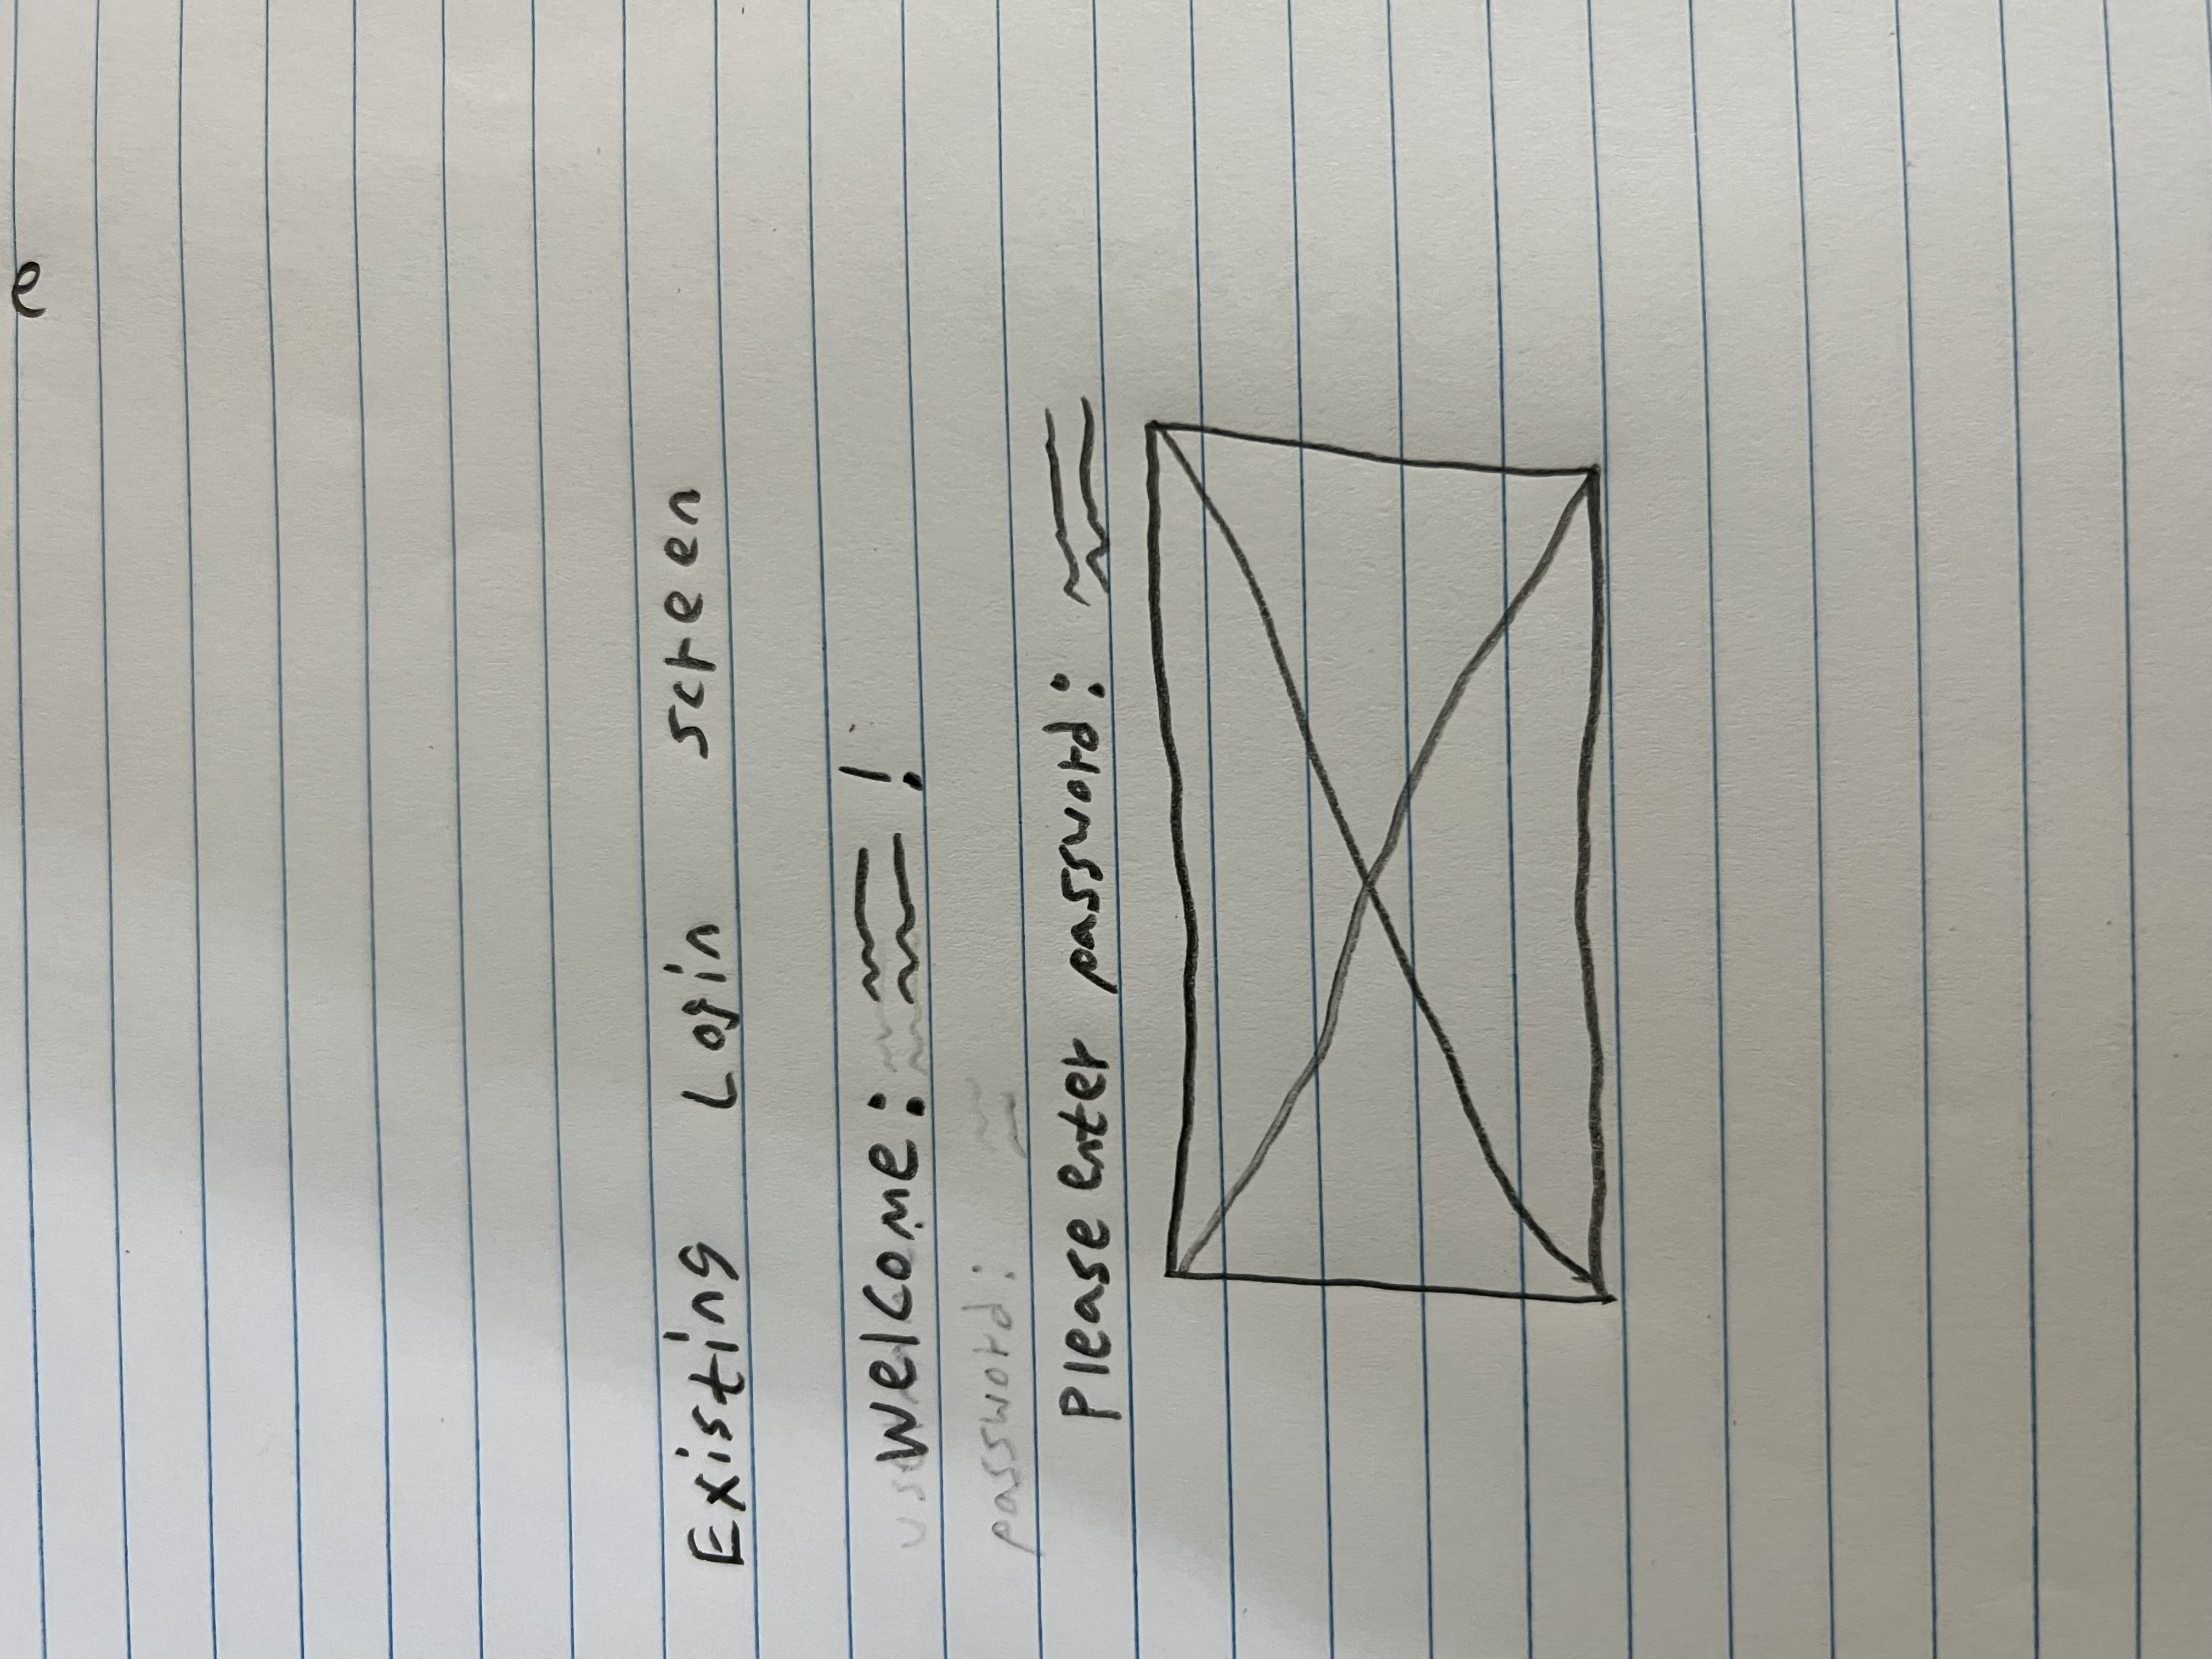 Existing Login screen
Welcome: !
password:
Please enter password: